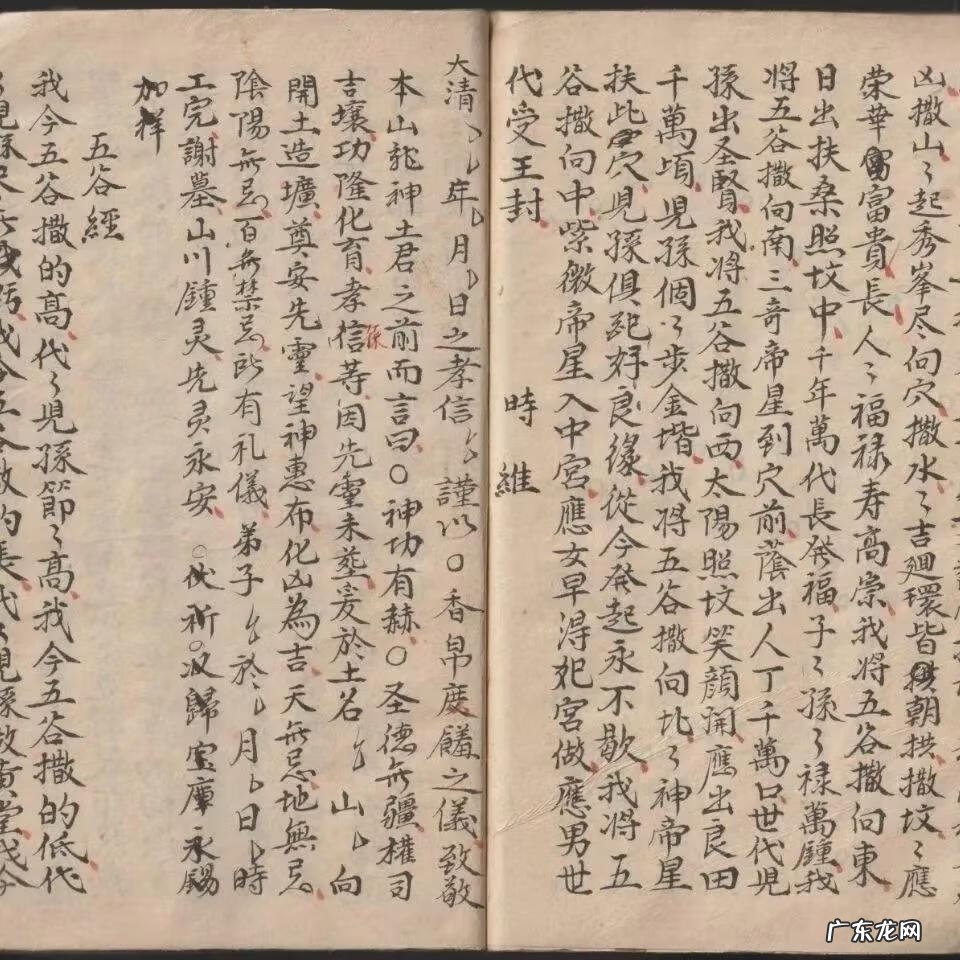 凶撒山〻起秀峯尽向穴撒水〻吉廻環皆拱朝拱撒坟〻應
荣華富富貴長人〻福禄寿高崇我將五谷撒向東
日出扶桑照坟中千年萬代長発福子〻孫〻禄萬鍾我
將五谷撒向南三奇帝星到穴前蔭出人丁千萬口世代児
孫出圣賢我將五谷撒向西太陽照坟笑顔開應出良田
千萬頃児孫個〻步金堦我將五谷撒向北〻神帝星
扶此穴児孫俱配好良缘從今発起永不歇我將五
谷撒向中紫微帝星入中宮應女早淂妃宮做應男世
代受王封
時維
大清〻年〻月〻日之孝信〻謹以〇香帛庶饈之儀致敬
本山龍神土君之前而言曰〇神功有赫〇圣德無疆權司
吉壤功隆化育孝信孫等因先霊未塟爰於土名〻山〻向
開土造壙奠安先霊望神惠布化凶為吉天無忌地無忌
陰陽無忌百無禁忌所有礼儀弟子〻於〻月〻日〻時
工完謝墓山川鍾灵先灵永安〇伏祈〇收歸宝庫永錫
加祥
五谷經
我今五谷撒的高代〻児孫節〻高我今五谷撒的低代